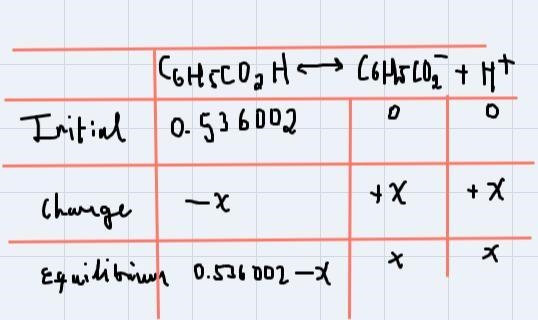 C6H5CO2H ⟷ C6H5CO2⁻ + H⁺
Initial 0.536002 0 0
Change -x +x +x
Equilibrium 0.536002-x x x